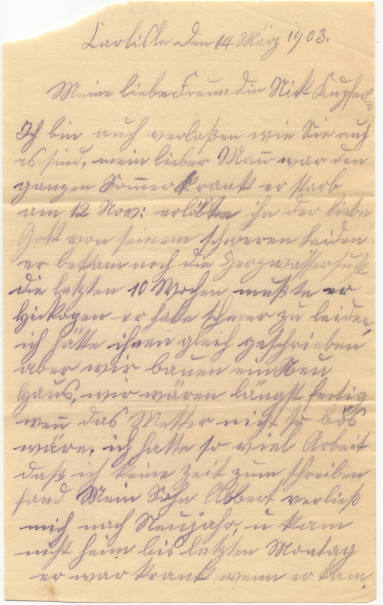 Carlisle den 14 März 1903.
Meine liebe Freundin Nick
Ich bin auch verlaßen wie Sie auch
es sind, mein lieber Mann war den
ganzen Sommer krank er starb
am 12 Nov: erlöste ihn der liebe
Gott von seinem schweren Leiden
er bekam noch die Herzwassersucht
die letzten 10 Wochen mußte er
er hatte schwer zu leiden,
ich hätte ihnen gleich geschrieben
aber wir bauen ein Neu
Haus, wir wären längst fertig
wenn das Wetter nicht so bös
wäre, ich hatte so viel Arbeit
daß ich keine zeit zum schreiben
fand Mein Sohn Albert verließ
mich nach Neujahr, u kam
nicht heim bis letzten Montag
er war krank wenn er kam.